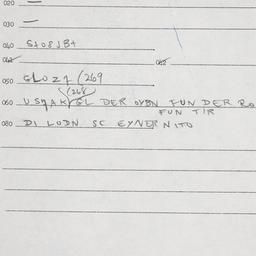 020 —
030 —
040 S408JB+
042 042
050 GLOZ1 (269
(268
060 USTAKYGL DER OYBN FUN DER
FUN TIR
080 DI LODN SC EYNER NITO